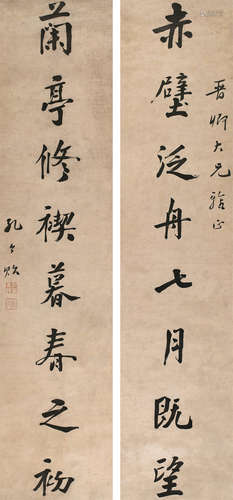 赤壁泛舟七月既望
晋卿大兄
蘭亭修禊暮春之初
孔